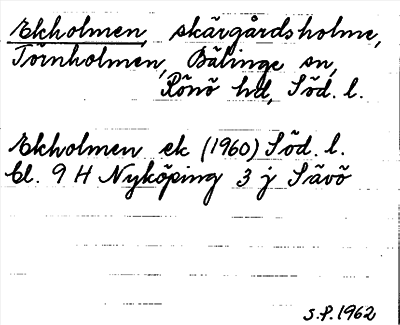 Ekholmen, skärgårdsholme,
Törnholmen, Bälinge sn,
Rönö hd, Söd. l.
Ekholmen ek (1960) Söd. l.
bl. 9 H Nyköping 3 j Sävö
S.P. 1962